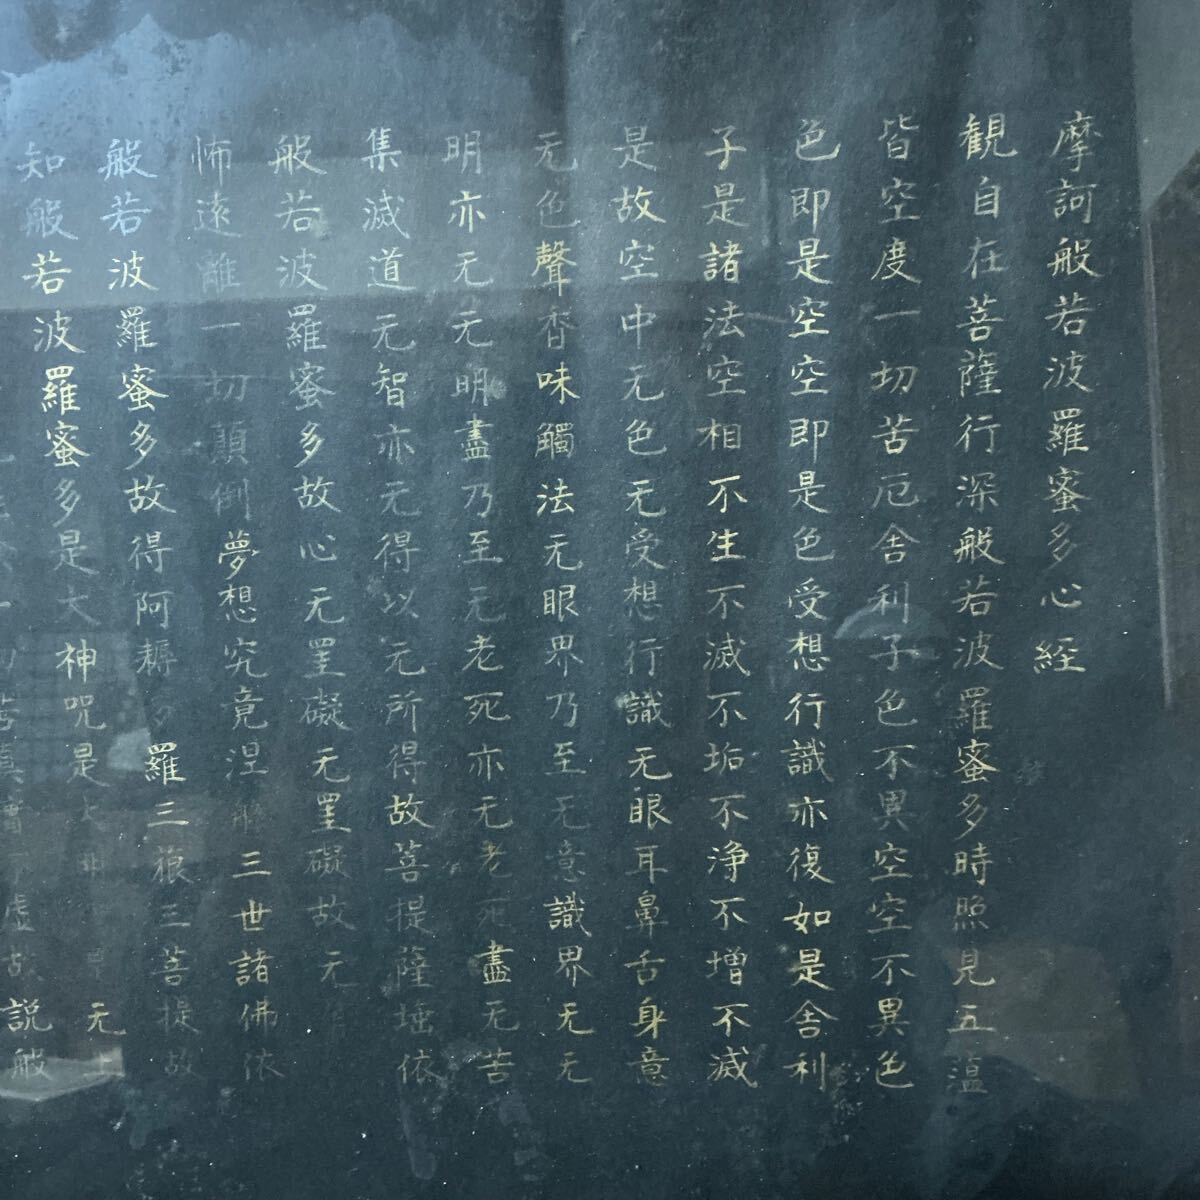 摩訶般若波羅蜜多心経
観自在菩薩行深般若波羅蜜多時照見五蕰
皆空度一切苦厄舎利子色不異空空不異色
色即是空空即是色受想行識亦復如是舎利
子是諸法空相不生不滅不垢不浄不增不滅
是故空中无色无受想行識无眼耳鼻舌身意
无色聲香味觸法无眼界乃至无意識界无无
明亦无无明盡乃至无老死亦无老死盡无苦
集滅道无智亦无得以无所得故菩提薩埵依
般若波羅蜜多故心无罣礙无罣礙故无有
怖遠離一切顛倒夢想究竟涅般三世諸佛依
般若波羅蜜多故得阿耨多羅三藐三菩提故
知般若波羅蜜多是大神呪是大明 无上
一切苦真實不虚故説般